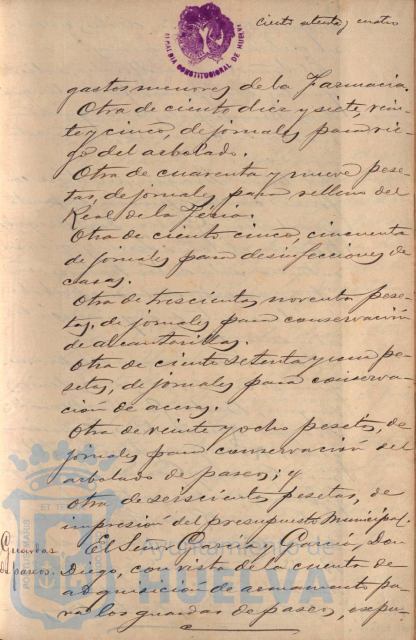 ciento setenta y cuatro
ALCALDIA CONSTITUCIONAL DE HUELVA
gastos menores de la Farmacia.
Otra de ciento diez y siete, vein-
te y cinco, de jornales para rie-
go del arbolado.
Otra de cuarenta y nueve pese-
tas, de jornales para relleno del
Real de la Feria.
Otra de ciento cinco, cincuenta
de jornales para desinfecciones de
casas.
Otra de trescientas noventa pese-
tas, de jornales para conservación
de alcantarillas.
Otra de ciento setenta y una pe-
setas, de jornales para conserva-
ción de aceras.
Otra de veinte y ocho pesetas, de
jornales para conservación del
arbolado de paseos; y
Otra de seiscientas pesetas, de
impresión del presupuesto Municipal.
Guardas
de paseos.
El Señor García y García, Don
Diego, con vista de la cuenta de
adquisición de armamento pa-
ra los guardas de paseos, expu-
Ayuntamiento de
HUELVA